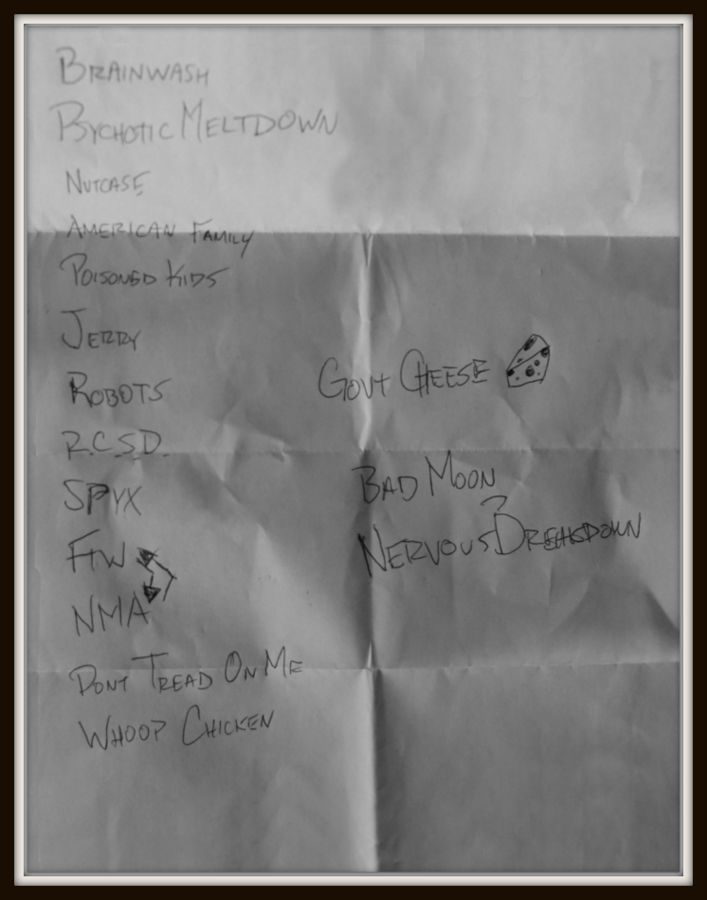 BRAINWASH
PSYCHOTIC MELTDOWN
NUTCASE
AMERICAN FAMILY
POISONED KIDS
JERRY
ROBOTS
R.C.S.D.
SPYX
FTW
NMA
DONT TREAD ON ME
WHOOP CHICKEN
GOVT CHEESE
BAD MOON
?
NERVOUS BREAKDOWN